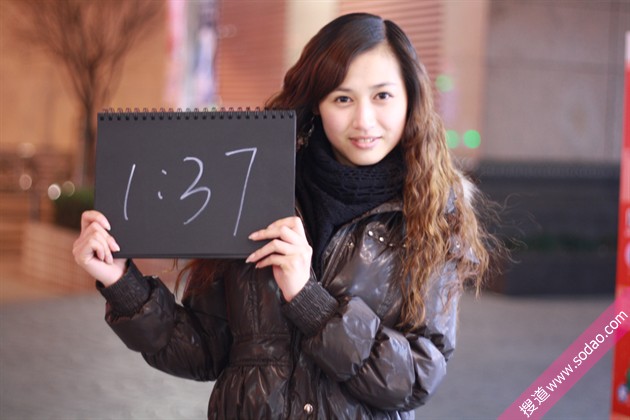 1:37
搜道www.sodao.com